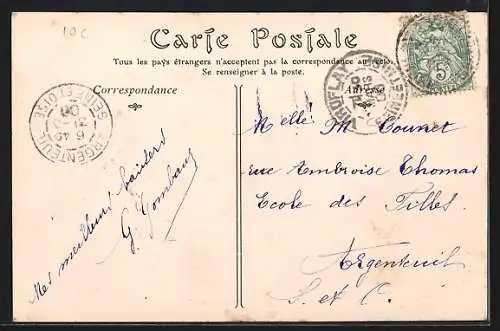 10c
Carte Postale
Tous les pays étrangers n'acceptent pas la correspondance au recto.
Se renseigner à la poste.
Correspondance
Adresse
ARGENTEUIL
SEINE ET OISE
VIROFLAY
5c
Mes meilleurs baisers
G.
Melle M Counet
rue Ambroise Thomas
Ecole des Filles
Argenteuil
S. et O.